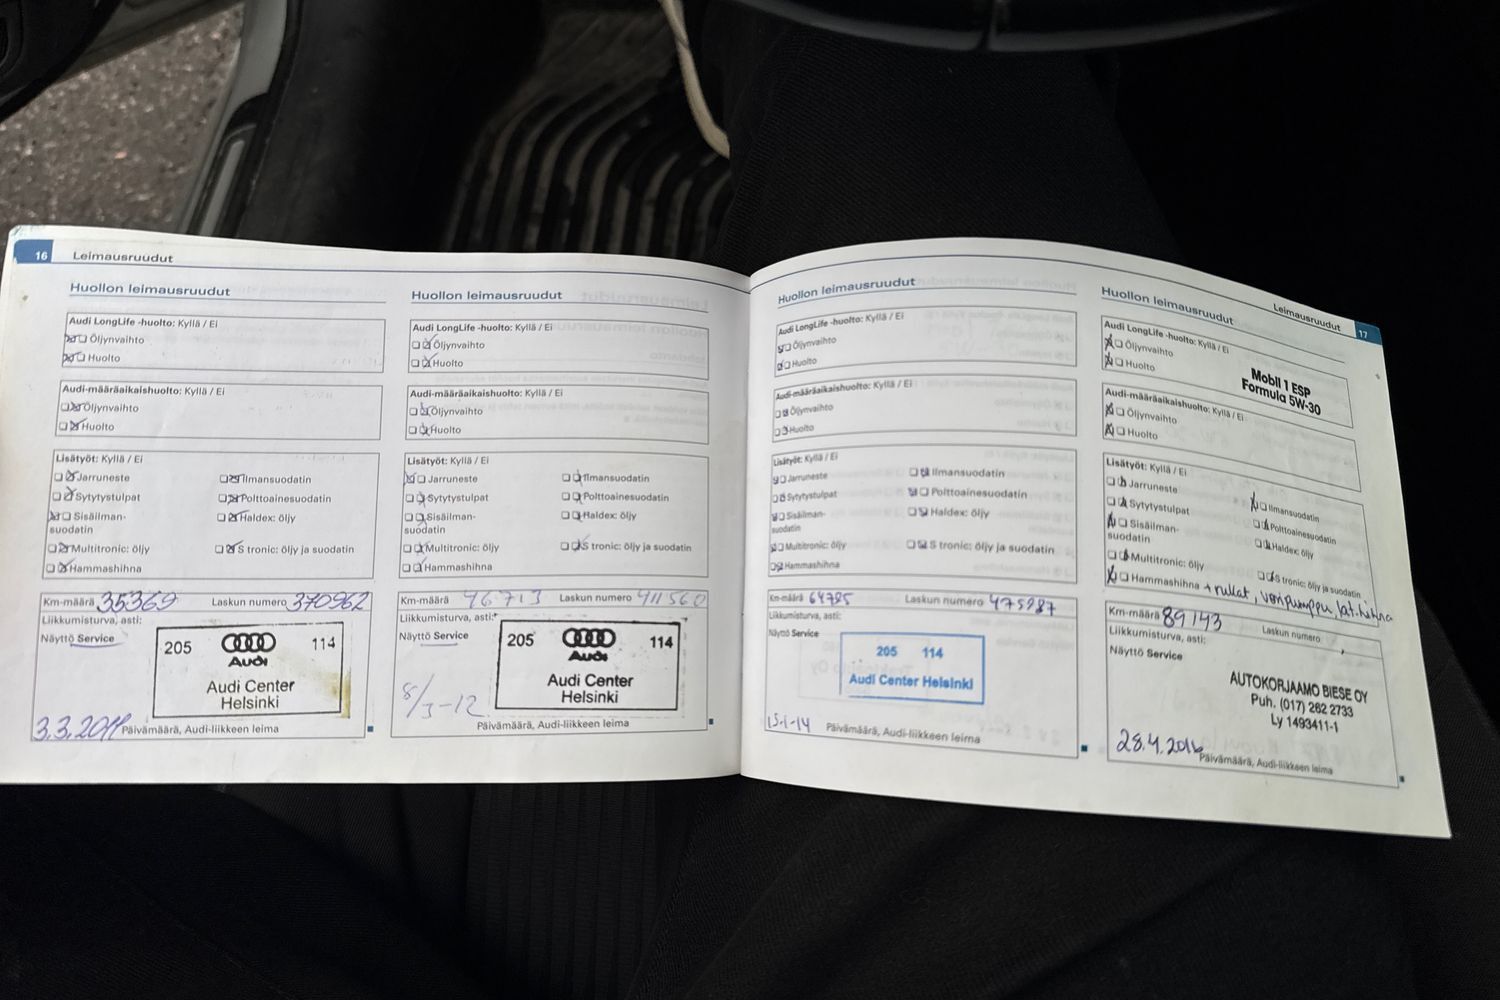 16 Leimausruudut
Huollon leimausruudut
Audi LongLife -huolto: Kyllä / Ei
Öljynvaihto
Huolto
Audi-määräaikaishuolto: Kyllä / Ei
Öljynvaihto
Huolto
Lisätyöt: Kyllä / Ei
Jarruneste
Ilmansuodatin
Sytytystulpat
Polttoainesuodatin
Sisäilman-
suodatin
Haldex: öljy
Multitronic: öljy
S tronic: öljy ja suodatin
Hammashihna
Km-määrä 35369 Laskun numero 370962
Liikkumisturva, asti:
Näyttö Service
205 114
Audi
Audi Center
Helsinki
3.3.2011 Päivämäärä, Audi-liikkeen leima
Huollon leimausruudut
Audi LongLife -huolto: Kyllä / Ei
Öljynvaihto
Huolto
Audi-määräaikaishuolto: Kyllä / Ei
Öljynvaihto
Huolto
Lisätyöt: Kyllä / Ei
Jarruneste
Ilmansuodatin
Sytytystulpat
Polttoainesuodatin
Sisäilman-
suodatin
Haldex: öljy
Multitronic: öljy
S tronic: öljy ja suodatin
Hammashihna
Km-määrä 46713 Laskun numero 411560
Liikkumisturva, asti:
Näyttö Service
205 114
Audi
Audi Center
Helsinki
8/3-12
Päivämäärä, Audi-liikkeen leima
Huollon leimausruudut
Audi LongLife -huolto: Kyllä / Ei
Öljynvaihto
Huolto
Audi-määräaikaishuolto: Kyllä / Ei
Öljynvaihto
Huolto
Lisätyöt: Kyllä / Ei
Jarruneste
Ilmansuodatin
Sytytystulpat
Polttoainesuodatin
Sisäilman-
suodatin
Haldex: öljy
Multitronic: öljy
S tronic: öljy ja suodatin
Hammashihna
Km-määrä 64795 Laskun numero 475987
Liikkumisturva, asti:
Näyttö Service
205 114
Audi Center Helsinki
15-1-14 Päivämäärä, Audi-liikkeen leima
Leimausruudut 17
Huollon leimausruudut
Audi LongLife -huolto: Kyllä / Ei
Öljynvaihto
Huolto
Mobil 1 ESP
Formula 5W-30
Audi-määräaikaishuolto: Kyllä / Ei
Öljynvaihto
Huolto
Lisätyöt: Kyllä / Ei
Jarruneste
Ilmansuodatin
Sytytystulpat
Polttoainesuodatin
Sisäilman-
suodatin
Haldex: öljy
Multitronic: öljy
S tronic: öljy ja suodatin
Hammashihna + rullat, vesipumppu, lat.hihna
Km-määrä 89143 Laskun numero
Liikkumisturva, asti:
Näyttö Service
AUTOKORJAAMO BIESE OY
Puh. (017) 262 2733
Ly 1493411-1
28.4.2016
Päivämäärä, Audi-liikkeen leima